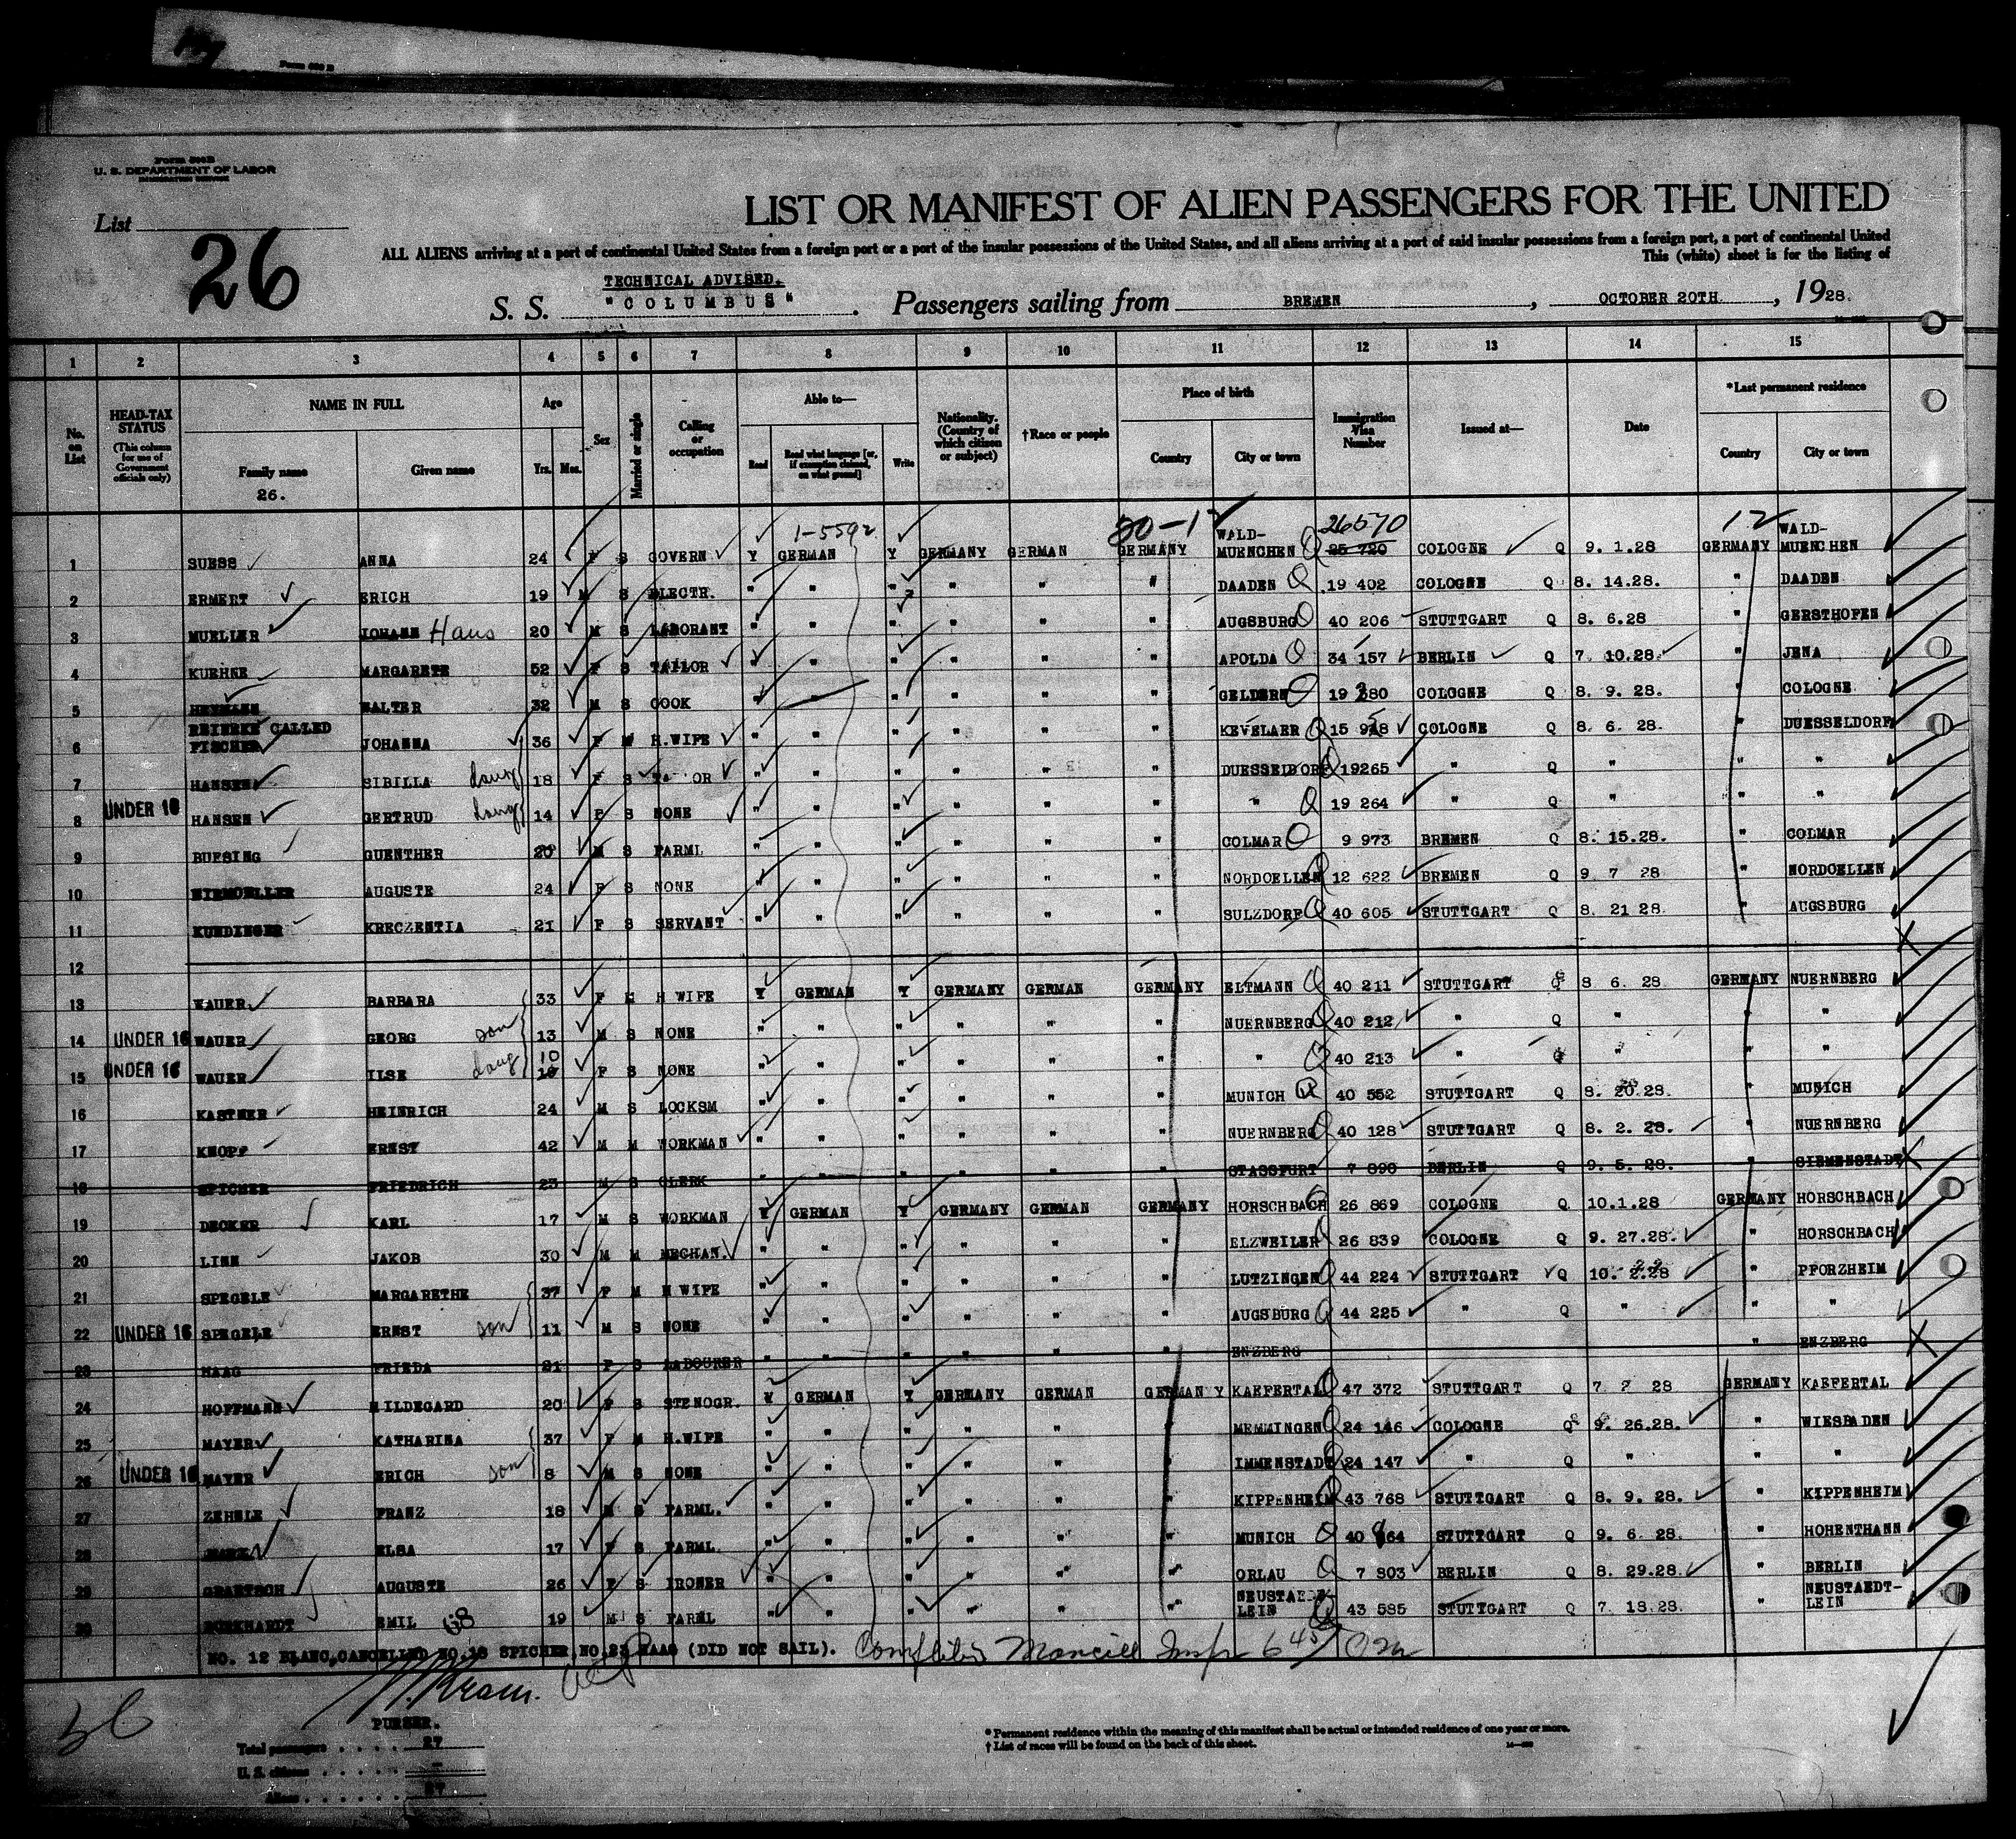 Form 500B
U. S. DEPARTMENT OF LABOR
IMMIGRATION SERVICE
List 26
LIST OR MANIFEST OF ALIEN PASSENGERS FOR THE UNITED
ALL ALIENS arriving at a port of continental United States from a foreign port or a port of the insular possessions of the United States, and all aliens arriving at a port of said insular possessions from a foreign port, a port of continental United
This (white) sheet is for the listing of
TECHNICAL ADVISED.
S. S. "COLUMBUS". Passengers sailing from BREMEN, OCTOBER 20TH, 1928.
1 2 3 4 5 6 7 8 9 10 11 12 13 14 15
No. on List
HEAD-TAX STATUS (This column for use of Government officials only)
NAME IN FULL Family name Given name
26.
Age Yrs. Mos.
Sex
Married or single
Calling or occupation
Able to— Read Read what language [or, if exemption claimed, on what ground] Write
Nationality. (Country of which citizen or subject)
†Race or people
Place of birth Country City or town
Immigration Visa Number
Issued at—
Date
*Last permanent residence Country City or town
1-5592 26570 12
1 SUESS ANNA 24 F S GOVERN Y GERMAN Y GERMANY GERMAN GERMANY WALD-MUENCHEN Q 25 720 COLOGNE Q 9. 1.28 GERMANY WALD-MUENCHEN
2 ERMERT ERICH 19 M S ELECTR. " " " " " " DAADEN Q 19 402 COLOGNE Q 8. 14.28. " DAADEN
3 MUELLER JOHANN Hans 20 M S LABORANT " " " " " " AUGSBURG Q 40 206 STUTTGART Q 8. 6.28 " GERSTHOFEN
4 KUEHNE MARGARETE 52 F S TAILOR " " " " " " APOLDA Q 34 157 BERLIN Q 7. 10.28. " JENA
5 WALTER 32 M S COOK " " " " " " GELDERN Q 19 380 COLOGNE Q 8. 9. 28. " COLOGNE
6 REINEKE CALLED FISCHER JOHANNA 36 F M H.WIFE " " " " " " KEVELAER Q 15 948 COLOGNE Q 8. 6. 28. " DUESSELDORF
7 HANSEN SIBILLA daug 18 F S " " " " " " DUESSELDORF Q 19265 " Q " " "
8 UNDER 16 HANSEN GERTRUD daug 14 F S NONE " " " " " " " Q 19 264 " Q " " "
9 BUESING GUENTHER 20 M S FARML " " " " " " COLMAR Q 9 973 BREMEN Q 8. 15.28. " COLMAR
10 NIEMOELLER AUGUSTE 24 F S NONE " " " " " " NORDOELLEN Q 12 622 BREMEN Q 9 7 28 " NORDOELLEN
11 KUNDINGER KRECZENTIA 21 F S SERVANT " " " " " " SULZDORF Q 40 605 STUTTGART Q 8. 21 28. " AUGSBURG
12
13 WAUER BARBARA 33 F M H WIFE Y GERMAN Y GERMANY GERMAN GERMANY ELTMANN Q 40 211 STUTTGART Q 8 6. 28 GERMANY NUERNBERG
14 UNDER 16 WAUER GEORG son 13 M S NONE " " " " " " NUERNBERG Q 40 212 " Q " " "
15 UNDER 16 WAUER ILSE daug 10 F S NONE " " " " " " " Q 40 213 " Q " " "
16 KASTNER HEINRICH 24 M S LOCKSM " " " " " " MUNICH Q 40 552 STUTTGART Q 8. 20.28. " MUNICH
17 KNOPP ERNST 42 M M WORKMAN " " " " " " NUERNBERG Q 40 128 STUTTGART Q 8. 2. 28. " NUERNBERG
18 SPICHER FRIEDRICH 23 M S CLERK " " " " " " STASSFURT 7 890 BERLIN Q 9. 5. 28. " SIEMENSTADT
19 DECKER KARL 17 M S WORKMAN Y GERMAN Y GERMANY GERMAN GERMANY HORSCHBACH Q 26 869 COLOGNE Q 10.1.28 GERMANY HORSCHBACH
20 LINN JAKOB 30 M M MECHAN. " " " " " " ELZWEILER Q 26 839 COLOGNE Q 9. 27.28. " HORSCHBACH
21 SPEGELE MARGARETHE 37 F M H WIFE " " " " " " LUTZINGEN Q 44 224 STUTTGART Q 10. 2.28 " PFORZHEIM
22 UNDER 16 SPEGELE ERNST son 11 M S NONE " " " " " " AUGSBURG Q 44 225 " Q " " "
23 HAAG FRIEDA 21 F S LABOURER " " " " " " ENZBERG " ENZBERG
24 HOFFMANN HILDEGARD 20 F S STENOGR. Y GERMAN Y GERMANY GERMAN GERMANY KAEFERTAL Q 47 372 STUTTGART Q 7 28 GERMANY KAEFERTAL
25 MAYER KATHARINA 37 F M H.WIFE " " " " " " MEMMINGEN Q 24 146 COLOGNE Q 9. 26.28. " WIESBADEN
26 UNDER 16 MAYER ERICH son 8 M S NONE " " " " " " IMMENSTADT Q 24 147 " Q " " "
27 ZEHNLE FRANZ 18 M S FARML. " " " " " " KIPPENHEIM Q 43 768 STUTTGART Q 8. 9. 28. " KIPPENHEIM
28 ELSA 17 F S FARML. " " " " " " MUNICH Q 40 864 STUTTGART Q 9. 6 28. " HOHENTHANN
29 GRAETSCH AUGUSTE 26 F S IRONER " " " " " " ORLAU Q 7 803 BERLIN Q 8. 29.28. " BERLIN
30 BURKHARDT EMIL 19 M S FARML " " " " " " NEUSTAEDT-LEIN Q 43 585 STUTTGART Q 7. 18.28. " NEUSTAEDT-LEIN
NO. 12 BLANC,CANCELLED NO.18 SPICHER,NO.23 HAAG (DID NOT SAIL).
PURSER.
Total passengers . . . . 27
U. S. citizens . . . . . –
Aliens . . . . . . 27
* Permanent residence within the meaning of this manifest shall be actual or intended residence of one year or more.
† List of races will be found on the back of this sheet.